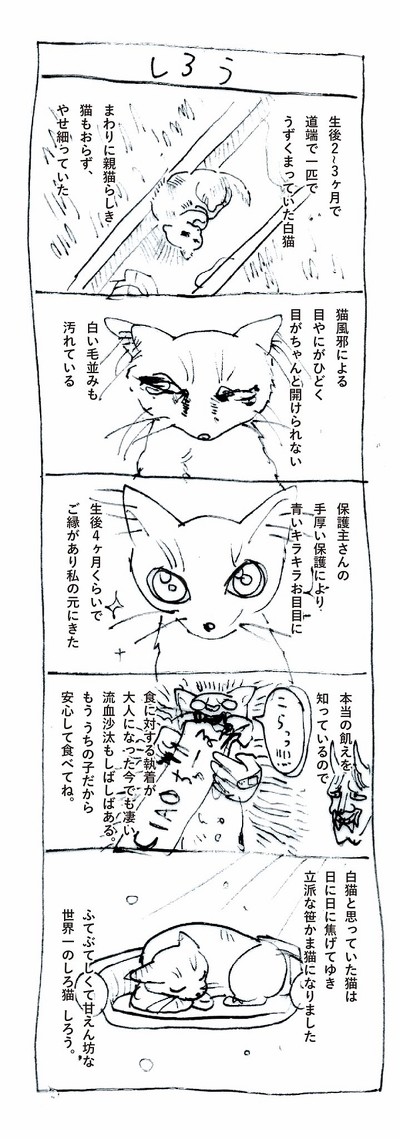 しろう
生後2~3ヶ月で
道端で一匹で
うずくまっていた白猫
まわりに親猫らしき
猫もおらず、
やせ細っていた
猫風邪による
目やにがひどく
目がちゃんと開けられない
白い毛並みも
汚れている
保護主さんの
手厚い保護により
青いキラキラお目目に
生後4ヶ月くらいで
ご縁があり私の元にきた
本当の飢えを
知っているので
こらっ!!!
CIAOちゅ~る
食に対する執着が
大人になった今でも凄い
流血沙汰もしばしばある。
もう うちの子だから
安心して食べてね。
白猫と思っていた猫は
日に日に焦げてゆき
立派な笹かま猫になりました
ふてぶてしくて甘えん坊な
世界一のしろ猫 しろう。